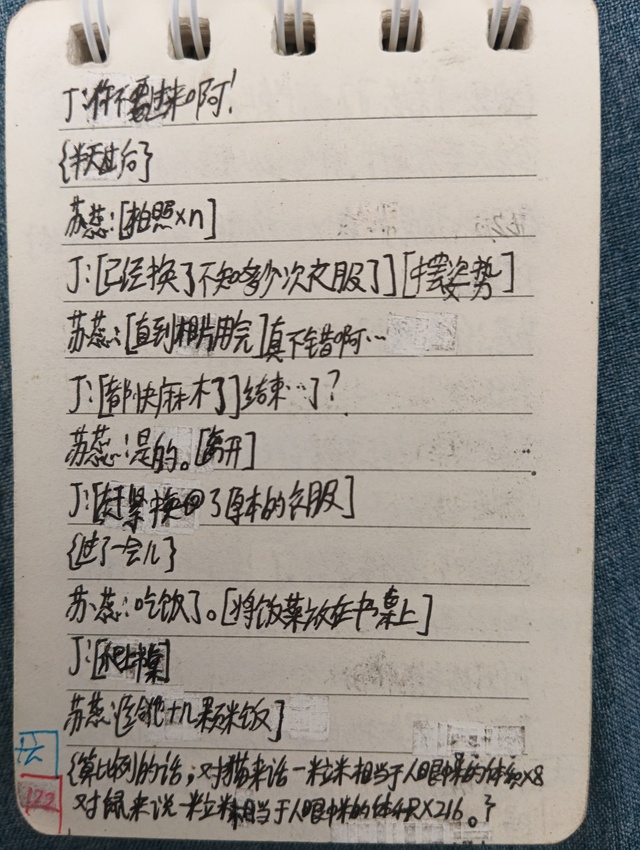 J:你不要过来啊!
{半天过后}
苏蕊:[拍照×n]
J:[已经换了不知多少次衣服了][摆姿势]
苏蕊:[直到相片用完]真不错啊…
J:[都快麻木了]结束…了?
苏蕊:是的。[离开]
J:[赶紧换回了原本的衣服]
{过了一会儿}
苏蕊:吃饭了。[将饭菜放在书桌上]
J:[爬上书桌]
苏蕊:[给他十几颗米饭]
{算比例的话,对猫来话一粒米相当于人眼中米的体积×8
对鼠来说一粒米相当于人眼中米的体积×216。}
122